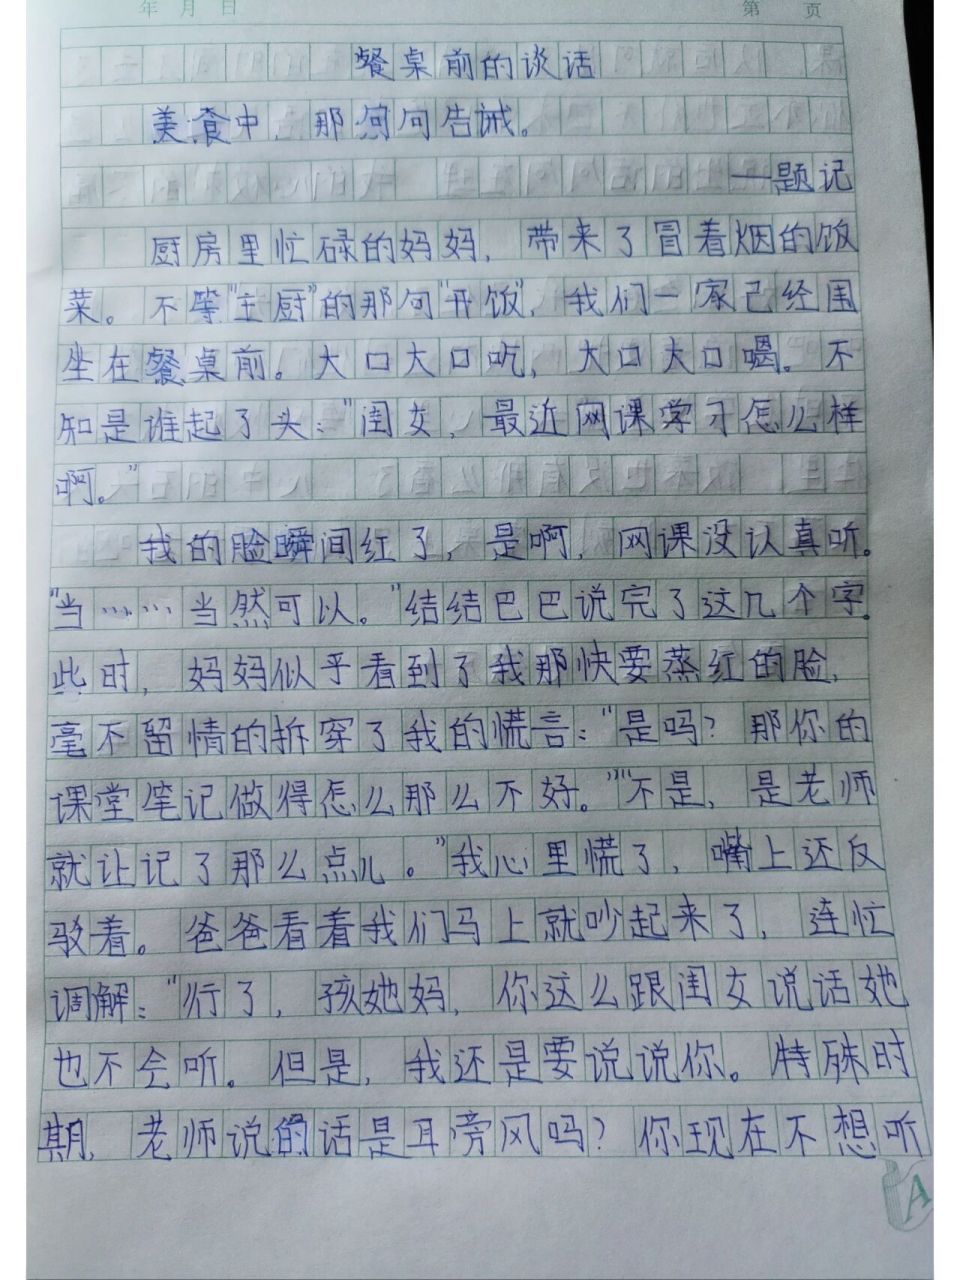 年 月 日 第 页
餐桌前的谈话
美食中，那句句告诫。
——题记
厨房里忙碌的妈妈，带来了冒着烟的饭
菜。不等"主厨"的那句"开饭"，我们一家已经围
坐在餐桌前。大口大口吃，大口大口喝。不
知是谁起了头："闺女，最近网课学习怎么样
啊。"
我的脸瞬间红了，是啊，网课没认真听。
"当……当然可以。"结结巴巴说完了这几个字。
此时，妈妈似乎看到了我那快要蒸红的脸，
毫不留情的拆穿了我的慌言："是吗？那你的
课堂笔记做得怎么那么不好。""不是，是老师
就让记了那么点儿。"我心里慌了，嘴上还反
驳着。爸爸看着我们马上就吵起来了，连忙
调解："行了，孩她妈，你这么跟闺女说话她
也不会听。但是，我还是要说说你。特殊时
期，老师说的话是耳旁风吗？你现在不想听
A